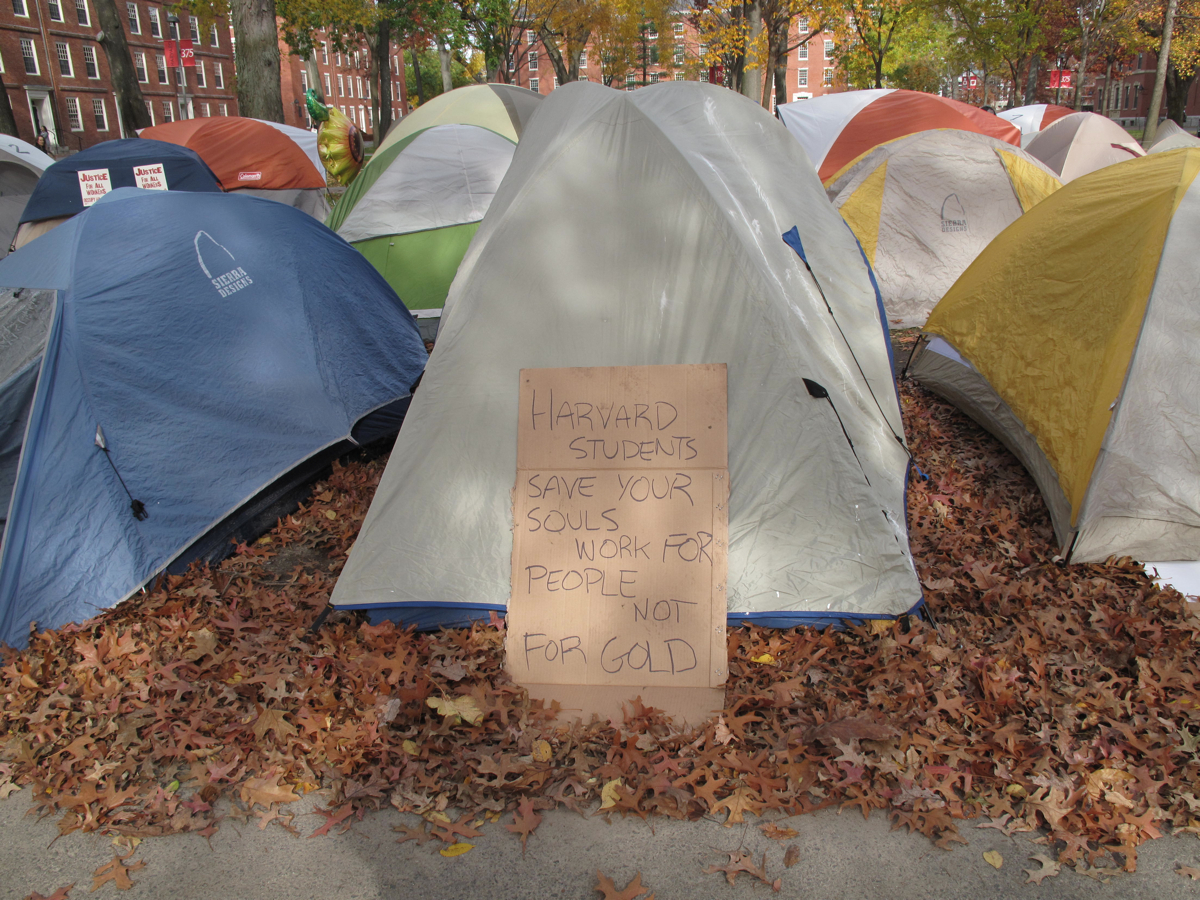 375
Coleman
JUSTICE
FOR ALL
WORKERS
JUSTICE
FOR ALL
WORKERS
SIERRA
DESIGNS
SIERRA
DESIGNS
HARVARD
STUDENTS
SAVE YOUR
SOULS
WORK FOR
PEOPLE
NOT
FOR GOLD